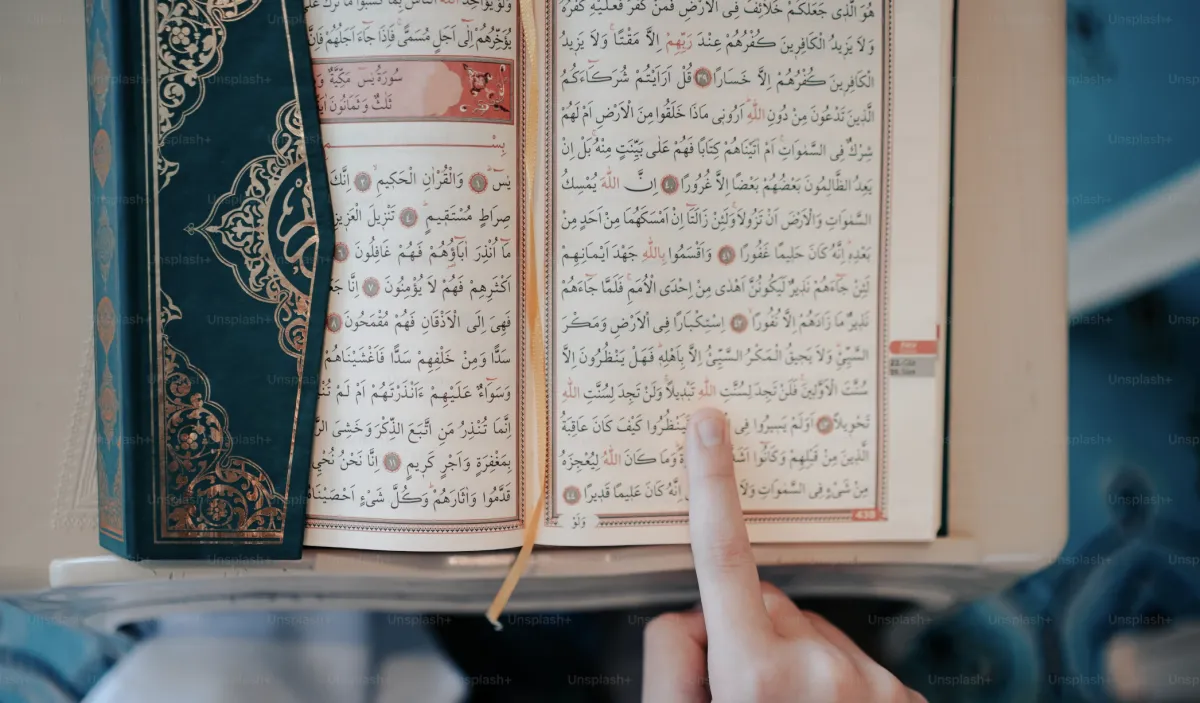 هُوَ الَّذٖى جَعَلَكُمْ خَلَائِفَ فِى الْاَرْضِ فَمَنْ كَفَرَ فَعَلَيْهِ كُفْرُهُ
وَلَا يَزٖيدُ الْكَافِرٖينَ كُفْرُهُمْ عِنْدَ رَبِّهِمْ اِلَّا مَقْتًا وَلَا يَزٖيدُ
الْكَافِرٖينَ كُفْرُهُمْ اِلَّا خَسَارًا ٣٩ قُلْ اَرَاَيْتُمْ شُرَكَاءَكُمُ
الَّذٖينَ تَدْعُونَ مِنْ دُونِ اللّٰهِ اَرُونٖى مَاذَا خَلَقُوا مِنَ الْاَرْضِ اَمْ لَهُمْ
شِرْكٌ فِى السَّمٰوَاتِ اَمْ اٰتَيْنَاهُمْ كِتَابًا فَهُمْ عَلٰى بَيِّنَتٍ مِنْهُ بَلْ اِنْ
يَعِدُ الظَّالِمُونَ بَعْضُهُمْ بَعْضًا اِلَّا غُرُورًا ٤٠ اِنَّ اللّٰهَ يُمْسِكُ
السَّمٰوَاتِ وَالْاَرْضَ اَنْ تَزُولَا وَلَئِنْ زَالَتَا اِنْ اَمْسَكَهُمَا مِنْ اَحَدٍ مِنْ
بَعْدِهٖ اِنَّهُ كَانَ حَلٖيمًا غَفُورًا ٤١ وَاَقْسَمُوا بِاللّٰهِ جَهْدَ اَيْمَانِهِمْ
لَئِنْ جَاءَهُمْ نَذٖيرٌ لَيَكُونُنَّ اَهْدٰى مِنْ اِحْدَى الْاُمَمِ فَلَمَّا جَاءَهُمْ
نَذٖيرٌ مَا زَادَهُمْ اِلَّا نُفُورًا ٤٢ اِسْتِكْبَارًا فِى الْاَرْضِ وَمَكْرَ
السَّيِّئِ وَلَا يَحٖيقُ الْمَكْرُ السَّيِّئُ اِلَّا بِاَهْلِهٖ فَهَلْ يَنْظُرُونَ اِلَّا
سُنَّتَ الْاَوَّلٖينَ فَلَنْ تَجِدَ لِسُنَّتِ اللّٰهِ تَبْدٖيلًا وَلَنْ تَجِدَ لِسُنَّتِ اللّٰهِ
تَحْوٖيلًا ٤٣ اَوَلَمْ يَسٖيرُوا فِى فَيَنْظُرُوا كَيْفَ كَانَ عَاقِبَةُ
الَّذٖينَ مِنْ قَبْلِهِمْ وَكَانُوا اَشَدَّ وَمَا كَانَ اللّٰهُ لِيُعْجِزَهُ
مِنْ شَىْءٍ فِى السَّمٰوَاتِ وَلَا اِنَّهُ كَانَ عَلٖيمًا قَدٖيرًا ٤٤
وَلَوْ
438
وَلَوْ يُؤَاخِذُ اللّٰهُ النَّاسَ بِمَا كَسَبُوا مَا تَرَكَ عَلٰى
يُؤَخِّرُهُمْ اِلٰى اَجَلٍ مُسَمًّى فَاِذَا جَاءَ اَجَلُهُمْ فَاِنَّ
سُورَةُ يٰسٓ مَكِّيَّةٌ وَ
ثَلٰثٌ وَثَمَانُونَ اٰيَةً
بِسْــ
يٰسٓ ١ وَالْقُرْاٰنِ الْحَكٖيمِ ٢ اِنَّكَ
صِرَاطٍ مُسْتَقٖيمٍ ٤ تَنْزٖيلَ الْعَزٖيزِ
مَا اُنْذِرَ اٰبَاؤُهُمْ فَهُمْ غَافِلُونَ ٦
اَكْثَرِهِمْ فَهُمْ لَا يُؤْمِنُونَ ٧ اِنَّا جَعَ
فَهِىَ اِلَى الْاَذْقَانِ فَهُمْ مُقْمَحُونَ ٨
سَدًّا وَمِنْ خَلْفِهِمْ سَدًّا فَاَغْشَيْنَاهُمْ
وَسَوَاءٌ عَلَيْهِمْ ءَاَنْذَرْتَهُمْ اَمْ لَمْ تُنْذِ
اِنَّمَا تُنْذِرُ مَنِ اتَّبَعَ الذِّكْرَ وَخَشِىَ الرَّ
بِمَغْفِرَةٍ وَاَجْرٍ كَرٖيمٍ ١١ اِنَّا نَحْنُ نُحْيِ
قَدَّمُوا وَاٰثَارَهُمْ وَكُلَّ شَىْءٍ اَحْصَيْنَاهُ
Unsplash+